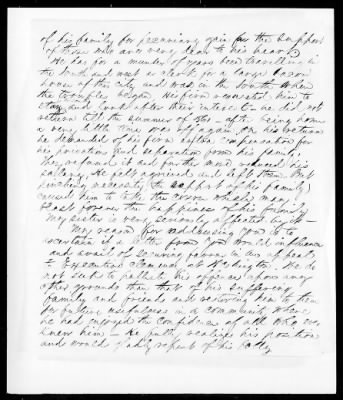 of his family for pecuniary gain for the support
of those who are very dear to his heart.
He has for a number of years been travelling in
the South and west as clerk for a large
house of this city and was in the South when
the trouble began. His firm requested him to
stay and look after their interest - he did not
return till the summer of - after being home
a very little time was off again. On his return
he demanded of his firm extra compensation for
his privations and separation from his family.
They refused it and further more reduced his
salary. He felt aggrieved and left them. But
pinching necessity (to support of his family)
caused him to
the happiness of his friends.
My sister is very seriously affected by it -
My reason for addressing you is to
ascertain if a letter from you would influence
and avail of securing favor to any appeals
to Executive clemency in his behalf. We do
not seek to palliate his offences upon any
other grounds than that of his suffering
family and friends and restoring him to them
for future usefulness in a community where
he had enjoyed the confidence of all who ever
knew him - He fully realizes his position
and would gladly repent of his folly